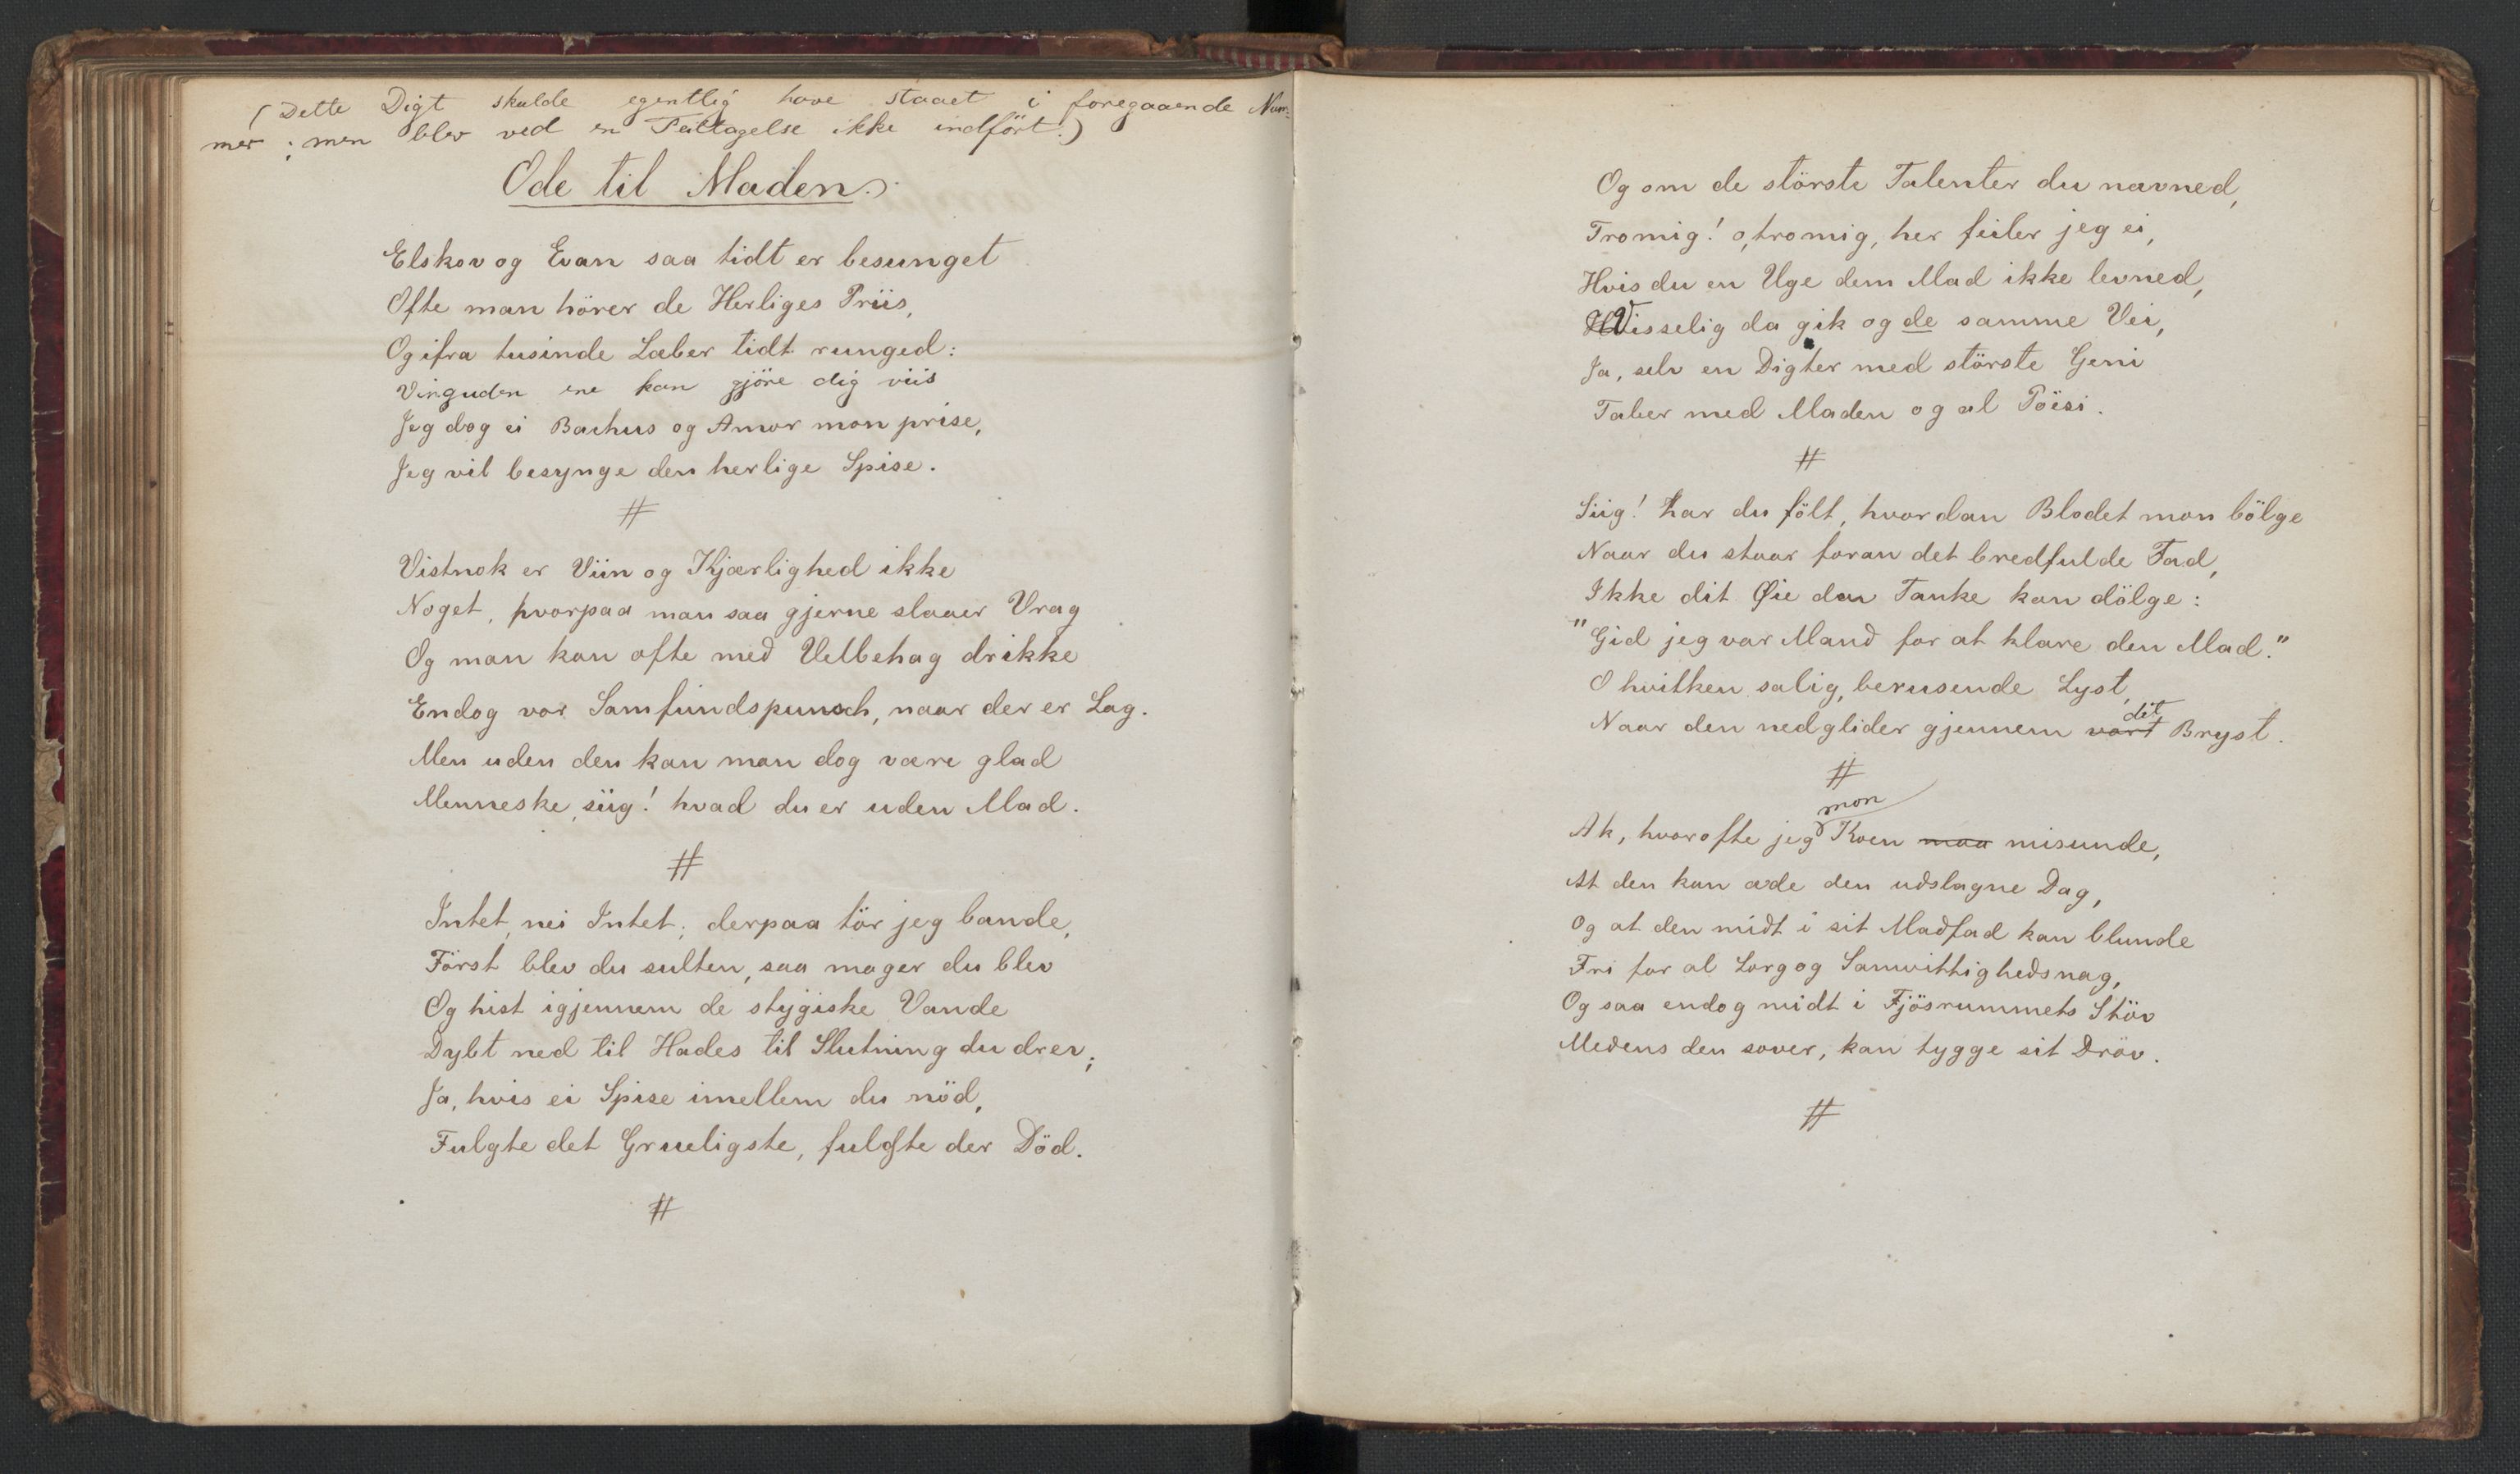 (Dette Digt skulde egentlig have staaet i foregaaende Num-
mer; men blev ved en Feiltagelse ikke indfört.)
Ode til Maden.
Elskov og Evan saa tidt er besunget
Ofte man hörer de Herliges Priis,
Og ifra tusinde Læber tidt runged:
Vinguden ene kan gjöre dig viis
Jeg dog ei Bachus og Amor mon prise,
Jeg vil besynge den herlige Spise.
#
Vistnok er Viin og Kjærlighed ikke
Noget, hvorpaa man saa gjerne slaaer Vrag
Og man kan ofte med Velbehag drikke
Endog vor Samfundspunsch, naar der er Lag.
Men uden den kan man dog være glad
Menneske, siig! hvad du er uden Mad.
#
Intet, nei Intet; derpaa tör jeg bande,
Först blev du sulten, saa mager du blev
Og hist igjennem de stygiske Vande
Dybt ned til Hades til Slutning du drev;
Ja, hvis ei Spise imellem du nöd,
Fulgte det Grueligste, fulgte der Död.
#
Og om de störste Talenter du nævned,
Tro mig! o, tro mig, her feiler jeg ei,
Hvis du en Uge dem Mad ikke levned,
Visselig da gik og de samme Vei,
Ja, selv en Digter med störste Geni
Taber med Maden og al Pöesi.
#
Siig! har du fölt, hvordan Blodet mon bölge
Naar du staar foran det bredfulde Fad,
Ikke dit Øie den Tanke kan dölge:
"Gid jeg var Mand for at klare den Mad."
O hvilken salig, berusende Lyst,
Naar den nedglider gjennem vort dit Bryst.
#
Ak, hvor ofte jeg mon Koen maa misunde,
At den kan æde den udslagne Dag,
Og at den midt i sit Madfad kan blunde
Fri for al Sorg og Samvittighedsnag,
Og saa endog midt i Fjösrummets Stöv
Medens den sover, kan tygge sit Dröv.
#